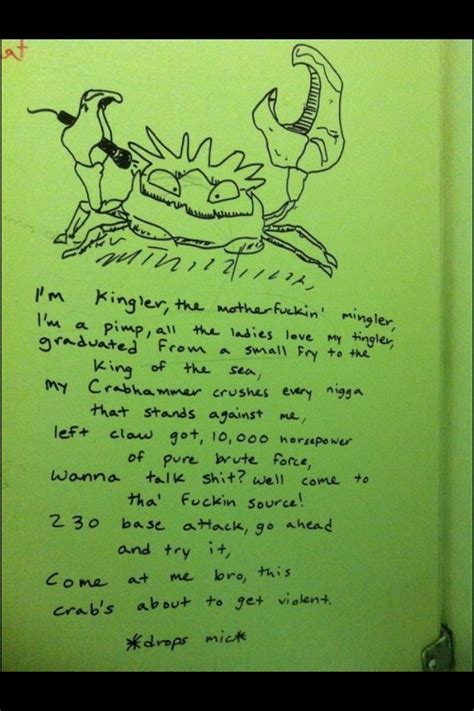 at
I'm Kingler, the motherfuckin' mingler,
I'm a pimp, all the ladies love my tingler,
graduated from a small fry to the
king of the sea,
my Crabhammer crushes every nigga
that stands against me,
left claw got, 10,000 horsepower
of pure brute force,
wanna talk shit? well come to
tha' fuckin source!
230 base attack, go ahead
and try it,
Come at me bro, this
crab's about to get violent.
*drops mic*